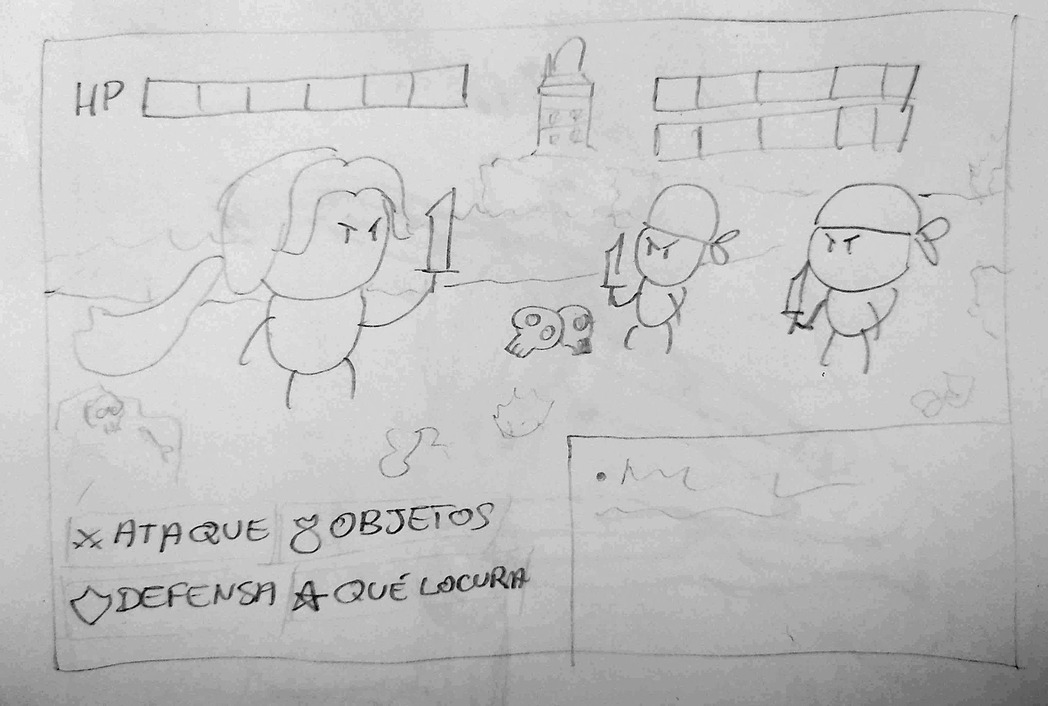 HP
ATAQUE OBJETOS
DEFENSA QUÉ LOCURA